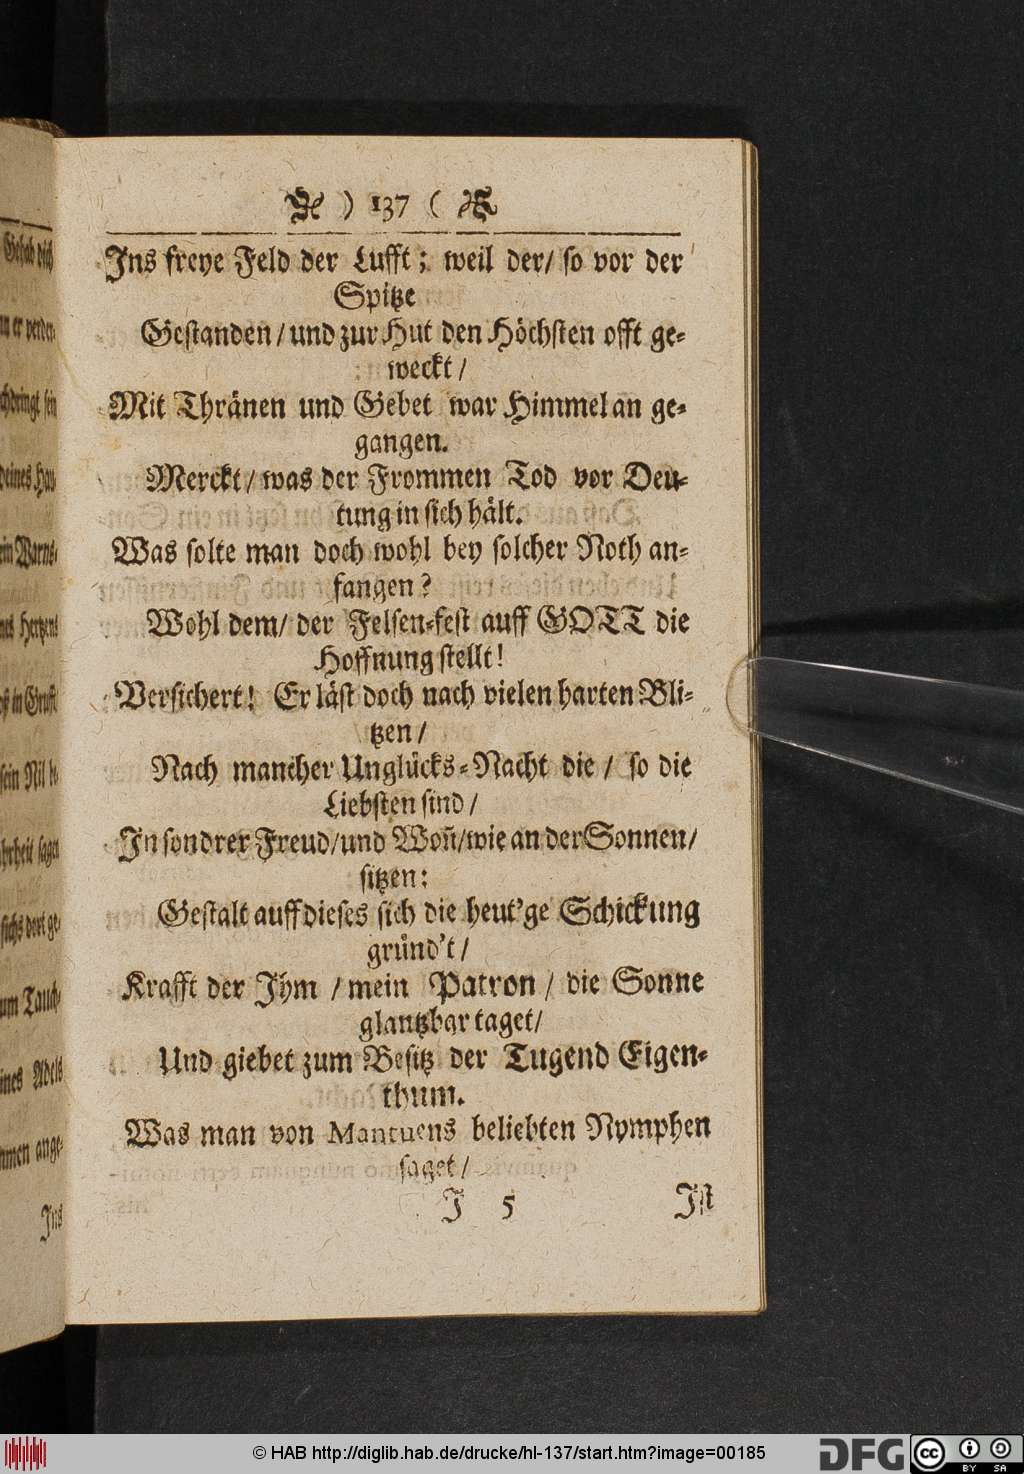 ) 137 (
Ins freye Feld der Lufft; weil der/ so vor der
Spitze
Gestanden/ und zur Hut den Höchsten offt ge-
weckt/
Mit Thränen und Gebet war Himmel an ge-
gangen.
Merckt/ was der Frommen Tod vor Deu-
tung in sich hält.
Was solte man doch wohl bey solcher Noth an-
fangen?
Wohl dem/ der Felsen-fest auff GOTT die
Hoffnung stellt!
Versichert! Er läst doch nach vielen harten Bli-
tzen/
Nach mancher Unglücks-Nacht die/ so die
Liebsten sind/
In sondrer Freud/ und Woñ/ wie an der Sonnen/
sitzen:
Gestalt auff dieses sich die heut'ge Schickung
gründ't/
Krafft der Ihm/ mein Patron/ die Sonne
glantzbar taget/
Und giebet zum Besitz der Tugend Eigen-
thum.
Was man von Mantuens beliebten Nymphen
saget/
J 5
Ist
Gehab dich
sein
deines
Hertzens
in Grufft
sein Nil
sagen
sichs dort ge-
Adels
ange-
Ins
© HAB http://diglib.hab.de/drucke/hl-137/start.htm?image=00185
DFG
cc BY SA